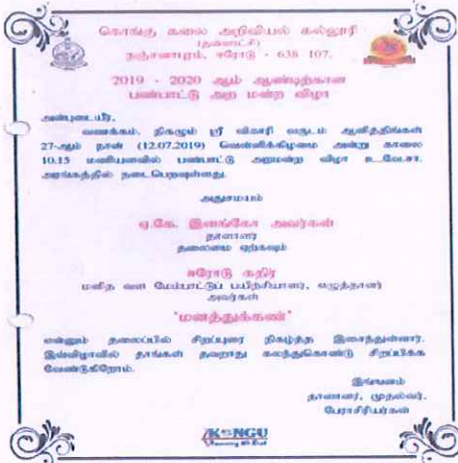 கொங்கு கலை அறிவியல் கல்லூரி
(தன்னாட்சி)
நஞ்சனாபுரம், ஈரோடு - 638 107.
2019 - 2020 ஆம் ஆண்டிற்கான
பண்பாட்டு அற மன்ற விழா
அன்புடையீர்,
வணக்கம், நிகழும் ஸ்ரீ விகாரி வருடம் ஆனித்திங்கள்
27-ஆம் நாள் (12.07.2019) வெள்ளிக்கிழமை அன்று காலை
10.15 மணியளவில் பண்பாட்டு அறமன்ற விழா உ.வே.சா.
அரங்கத்தில் நடைபெறவுள்ளது.
அதுசமயம்
ஏ.கே. இளங்கோ அவர்கள்
தாளாளர்
தலைமை ஏற்கவும்
ஈரோடு கதிர்
மனித வள மேம்பாட்டுப் பயிற்சியாளர், எழுத்தாளர்
அவர்கள்
'மனத்துக்கண்'
என்னும் தலைப்பில் சிறப்புரை நிகழ்த்த இசைந்துள்ளார்.
இவ்விழாவில் தாங்கள் தவறாது கலந்துகொண்டு சிறப்பிக்க
வேண்டுகிறோம்.
இங்ஙனம்
தாளாளர், முதல்வர்,
பேராசிரியர்கள்
KONGU